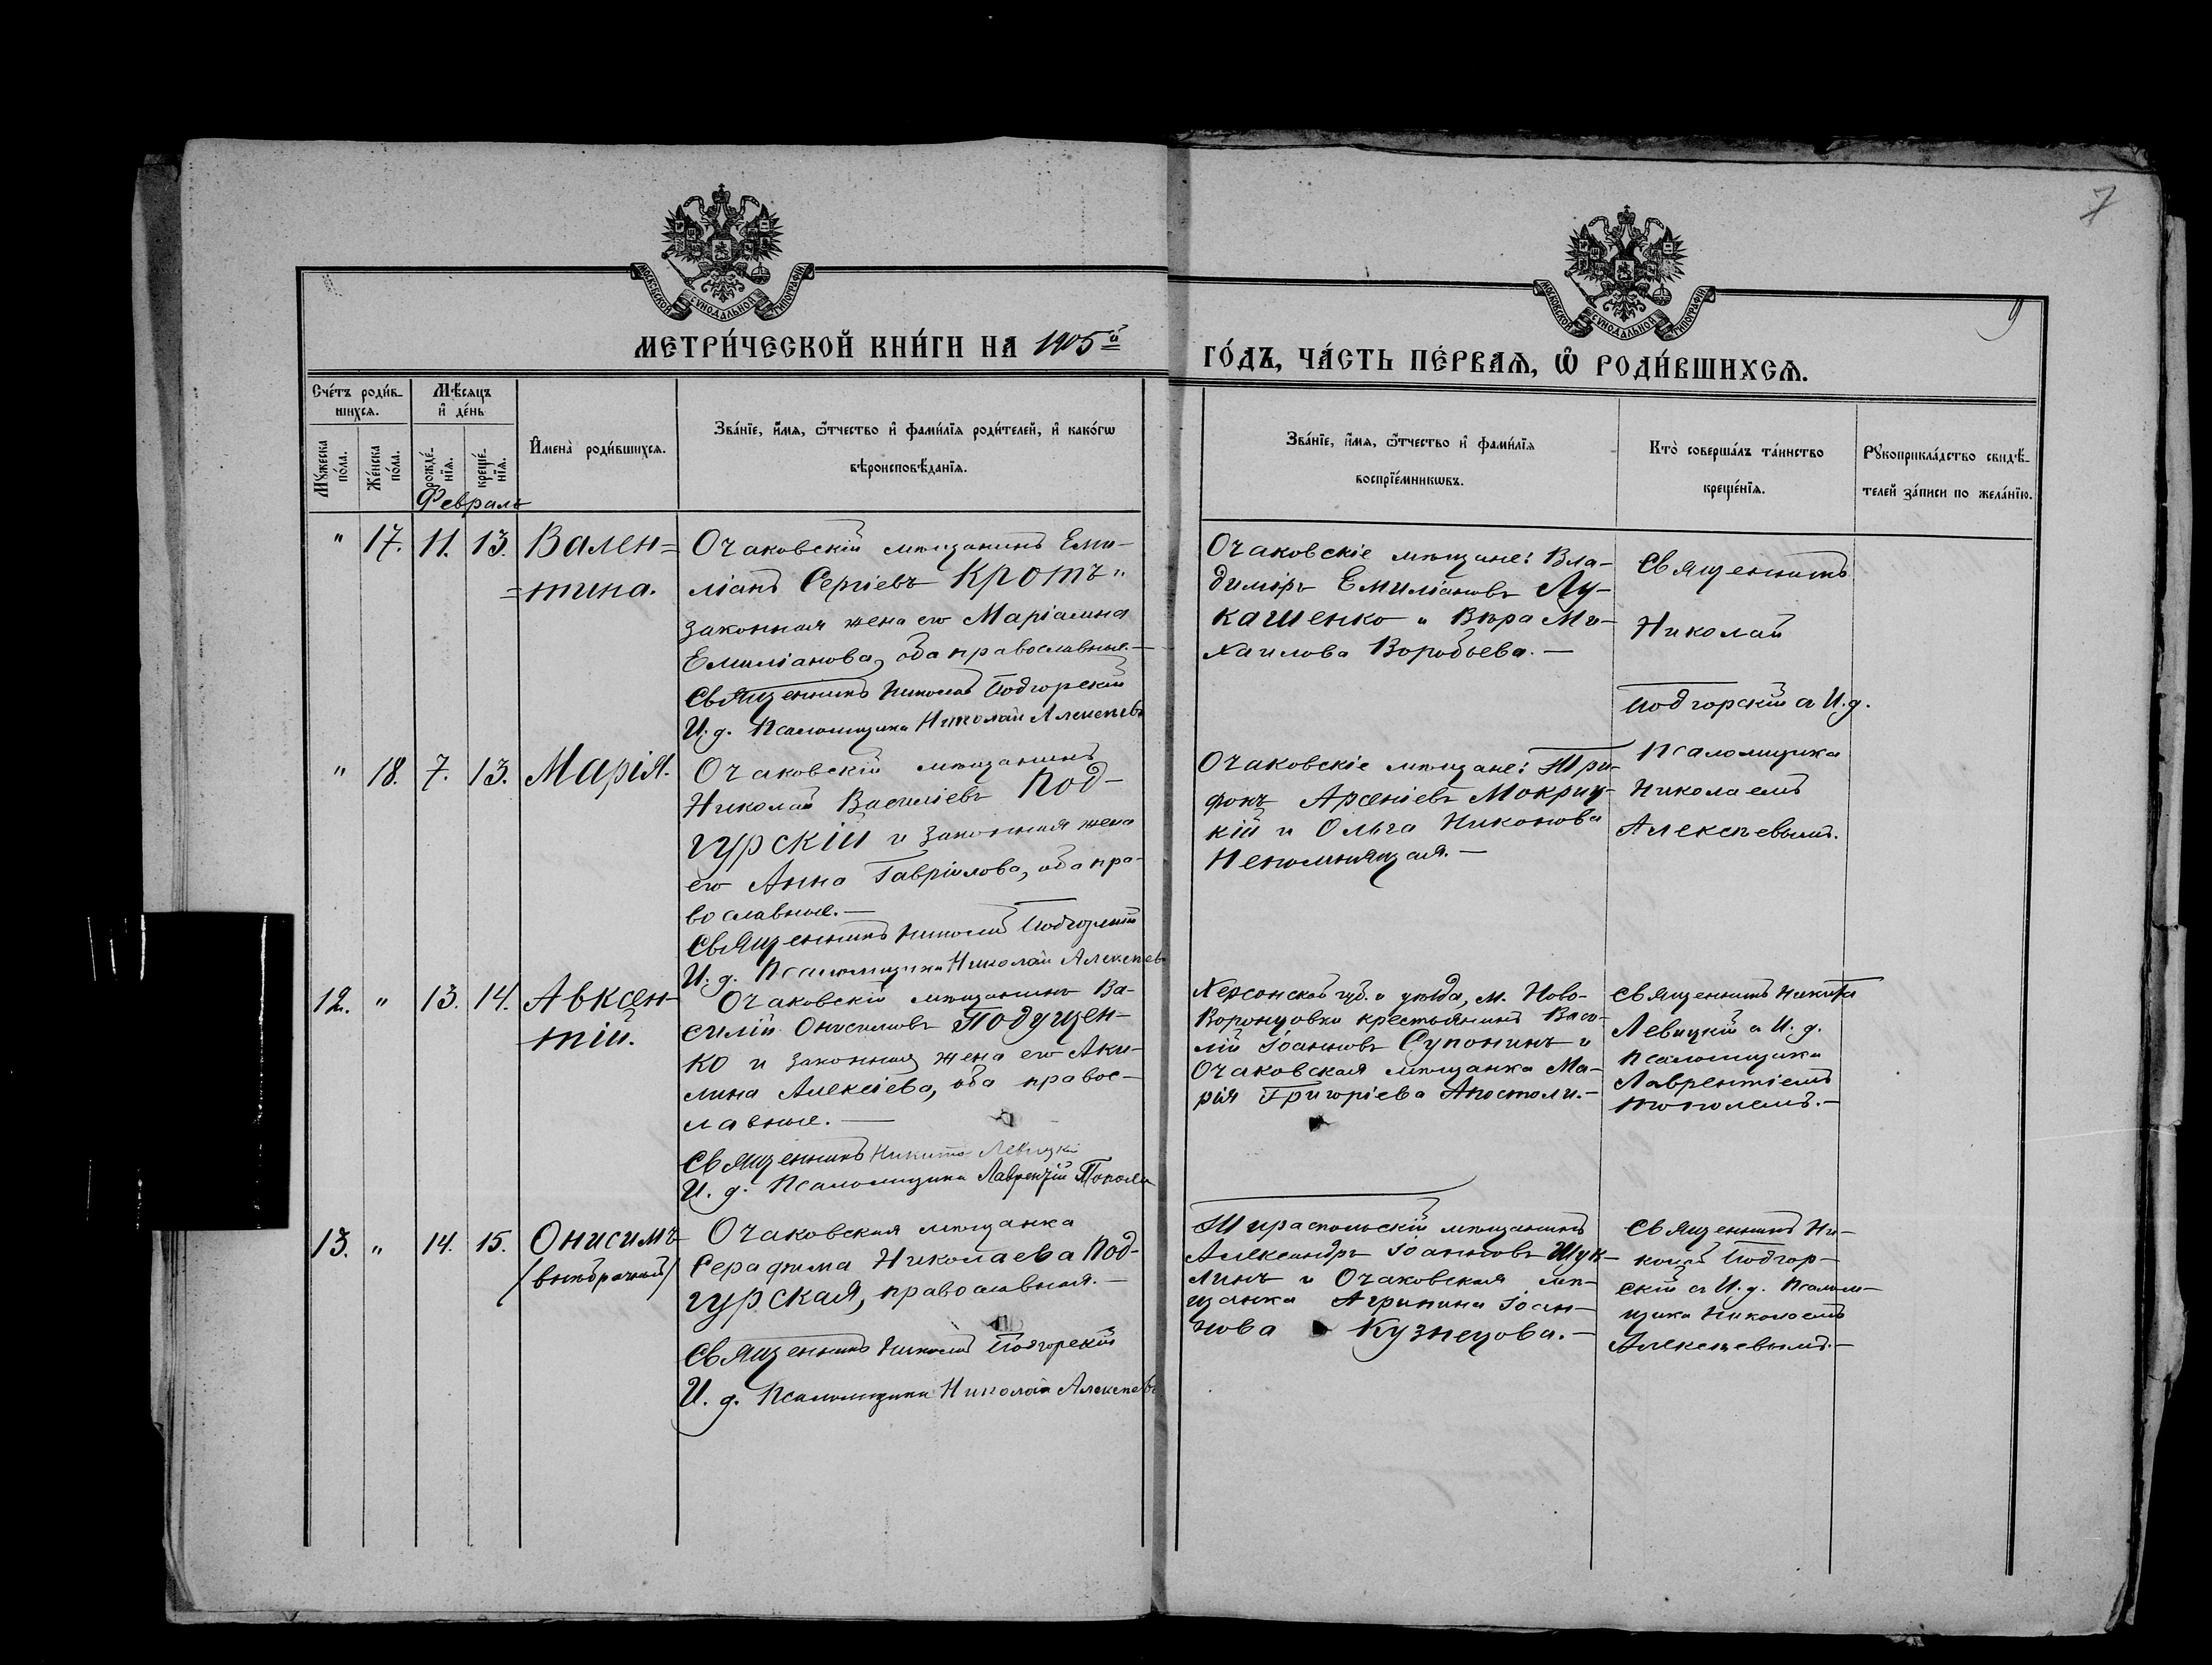 7
МОСКОВСКОЙ СѴНОДАЛЬНОЙ ТИПОГРАФІИ
МОСКОВСКОЙ СѴНОДАЛЬНОЙ ТИПОГРАФІИ
МЕТРИ́ЧЕСКОЙ КНИ́ГИ НА 1905й
ГО́ДЪ, ЧА́СТЬ ПЕ́РВАѦ, Ѽ РОДИ́ВШИХСѦ.
Сче́тъ роди́в-
шихсѧ.
Мѣ́сѧцъ
и҆ де́нь
Мꙋ́жеска
по́ла.
Же́нска
по́ла.
рожде́-
нїѧ.
креще́-
нїѧ.
И҆мена̀ роди́вшихсѧ.
Зва́нїе, и҆́мѧ, ѻ҆́тчество и҆ фами́лїѧ роди́телей, и҆ како́гѡ
вѣроисповѣ́данїѧ.
Зва́нїе, и҆́мѧ, ѻ҆́тчество и҆ фами́лїѧ
воспрїе́мникѡвъ.
Кто̀ соверша́лъ та́инство
креще́нїѧ.
Рꙋкоприкла́дство свидѣ́-
телей за́писи по жела́нїю.
Февраль
" 17. 11. 13. Вален=
=тина.
Очаковскій мѣщанинъ Еми-
ліанъ Сергіевъ Кротъ и
законная жена его Маріамна
Емиліанова, оба православные.—
Священникъ Николай Подгорскій
И. д. Псаломщика Николай Алексѣевъ
Очаковскіе мѣщане: Вла-
диміръ Емиліановъ Лу-
кашенко и Вѣра Ми-
хаилова Воробьева.—
Священникъ
Николай
Подгорскій съ И. д.
Псаломщика
Николаемъ
Алексѣевымъ.
" 18. 7. 13. Марія.
Очаковскій мѣщанинъ
Николай Василіевъ Под-
гурскій и законная жена
его Анна Гавріилова, оба пра-
вославные.—
Священникъ Николай Подгорскій
И. д. Псаломщика Николай Алексѣевъ
Очаковскіе мѣщане: Три-
фонъ Арсеніевъ Мокриц-
кій и Ольга Никонова
Непомнящая.—
12. " 13. 14. Авксен-
тій.
Очаковскій мѣщанинъ Ва-
силій Онисимовъ Подущен-
ко и законная жена его Аки-
лина Алексіева, оба правос-
лавные.—
Священникъ Никита Левицкій
И. д. Псаломщика Лаврентій Тополь
Херсонской губ. и уѣзда, м. Ново-
Воронцовки крестьянинъ Васи-
лій Іоанновъ Супонинъ и
Очаковская мѣщанка Ма-
рія Григоріева Апостоли.—
Священникъ Никита
Левицкій съ И. д.
Псаломщика
Лаврентіемъ
Тополемъ.—
13. " 14. 15. Онисимъ
(внѣбрачный)
Очаковская мѣщанка
Серафима Николаева Под-
гурская, православная.—
Священникъ Николай Подгорскій
И. д. Псаломщика Николай Алексѣевъ
Тираспольскій мѣщанинъ
Александръ Іоанновъ Шук-
линъ и Очаковская мѣ-
щанка Агрипина Іоан-
нова Кузнецова.—
Священникъ Ни-
колай Подгор-
скій съ И. д. Псалом-
щика Николаемъ
Алексѣевымъ.—